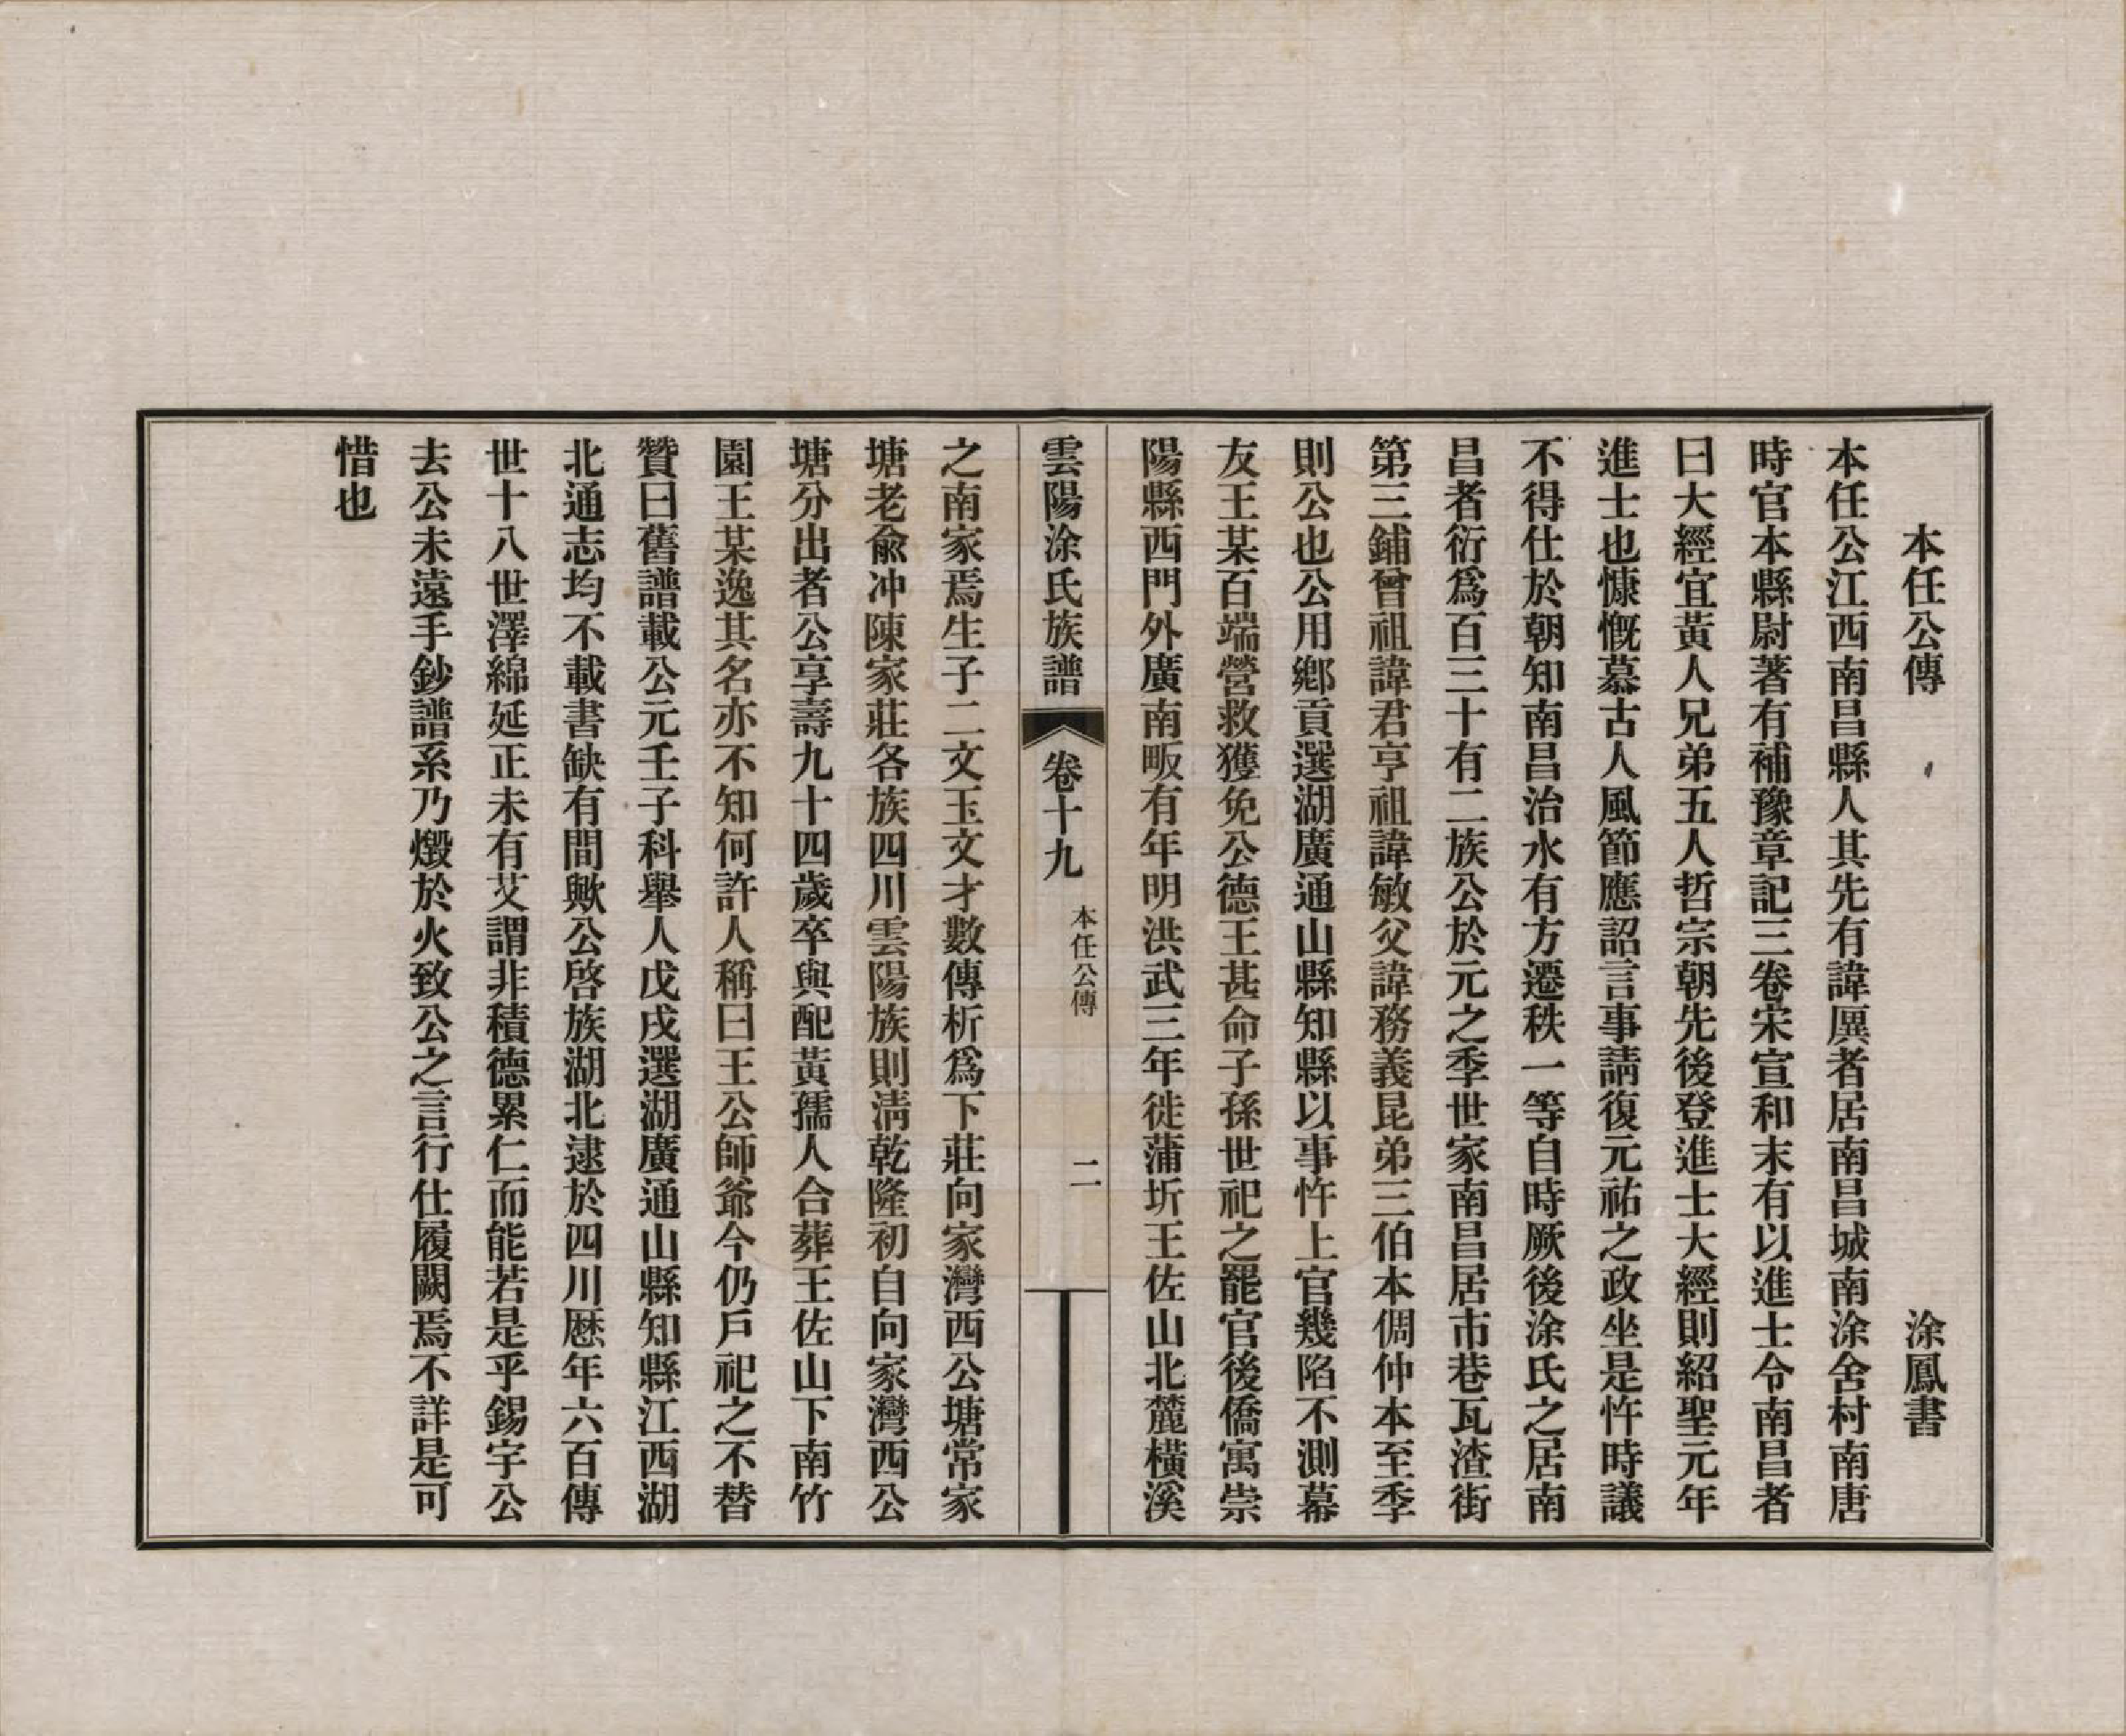 本任公傳　涂鳳書
本任公江西南昌縣人其先有諱厲者居南昌城南涂舍村南唐
時官本縣尉著有補豫章記三卷宋宣和末有以進士令南昌者
曰大經宜黃人兄弟五人哲宗朝先後登進士大經則紹聖元年
進士也慷慨慕古人風節應詔言事請復元祐之政坐是忤時議
不得仕於朝知南昌治水有方遷秩一等自時厥後涂氏之居南
昌者衍爲百三十有二族公於元之季世家南昌居市巷瓦渣街
第三鋪曾祖諱君亨祖諱敏父諱務義昆弟三伯本倜仲本至季
則公也公用鄉貢選湖廣通山縣知縣以事忤上官幾陷不測幕
友王某百端營救獲免公德王甚命子孫世祀之罷官後僑寓崇
陽縣西門外廣南畈有年明洪武三年徙蒲圻王佐山北麓橫溪
雲陽涂氏族譜
卷十九
本任公傳
二
之南家焉生子二文玉文才數傳析爲下莊向家灣西公塘常家
塘老兪冲陳家莊各族四川雲陽族則清乾隆初自向家灣西公
塘分出者公享壽九十四歲卒與配黃孺人合葬王佐山下南竹
園王某逸其名亦不知何許人稱曰王公師爺今仍戶祀之不替
贊曰舊譜載公元壬子科舉人戊戌選湖廣通山縣知縣江西湖
北通志均不載書缺有間歟公啓族湖北逮於四川歷年六百傳
世十八世澤綿延正未有艾謂非積德累仁而能若是乎錫宇公
去公未遠手鈔譜系乃燬於火致公之言行仕履闕焉不詳是可
惜也